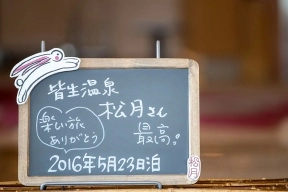 皆生温泉
松月さん
楽しい旅
ありがとう
最高!
2016年5月23日泊
松月